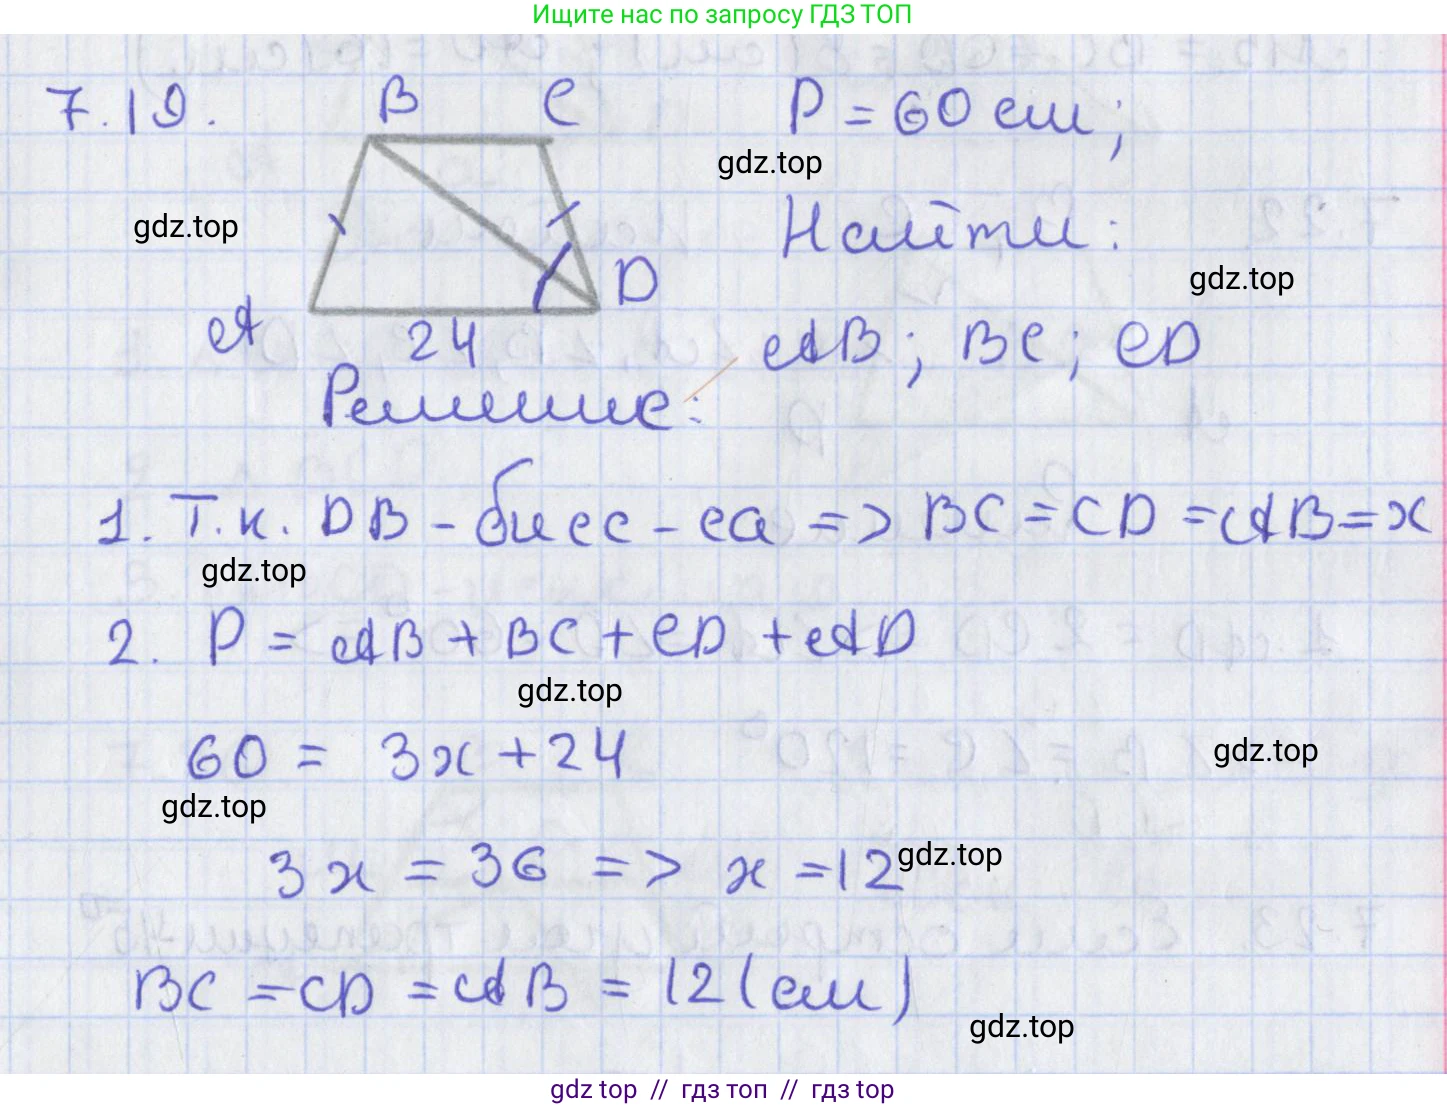 Ищите нас по запросу ГДЗ ТОП
7.19.
B C
P = 60 см;
gdz.top
gdz.top
Найти:
gdz.top
D
A
24
AB; BC; CD
Решение:
1. Т.к. DB - бисс-са => BC = CD = AB = x
gdz.top
2. P = AB + BC + CD + AD
gdz.top
60 = 3x + 24
gdz.top
gdz.top
3x = 36 => x = 12
gdz.top
BC = CD = AB = 12 (см)
gdz.top
gdz top // гдз топ // гдз top